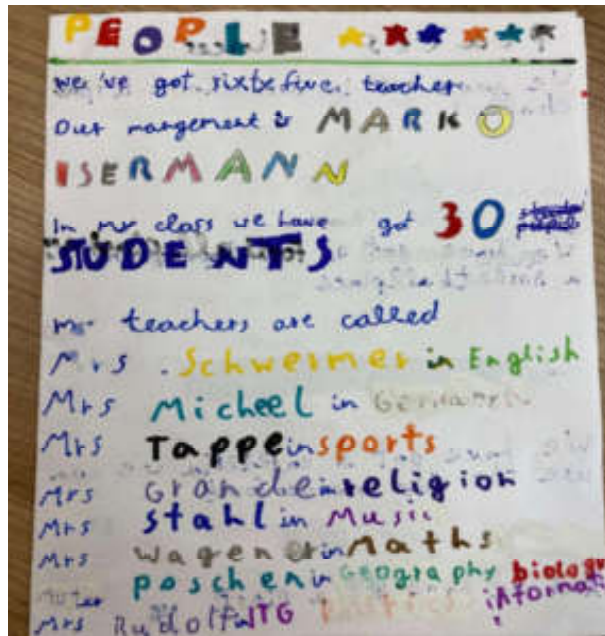 PEOPLE
we've got sixty five teacher
Our mangement is MARKO
ISERMANN
In my class we have got 30
STUDENTS
my teachers are called
Mrs. Schwermer in English
Mrs Micheel in German
Mrs Tappe in sports
Mrs Grande in religion
Mrs stahl in Music
Mrs wagener in Maths
poschen in Geography biology
Mrs Rudolf in ITG informati